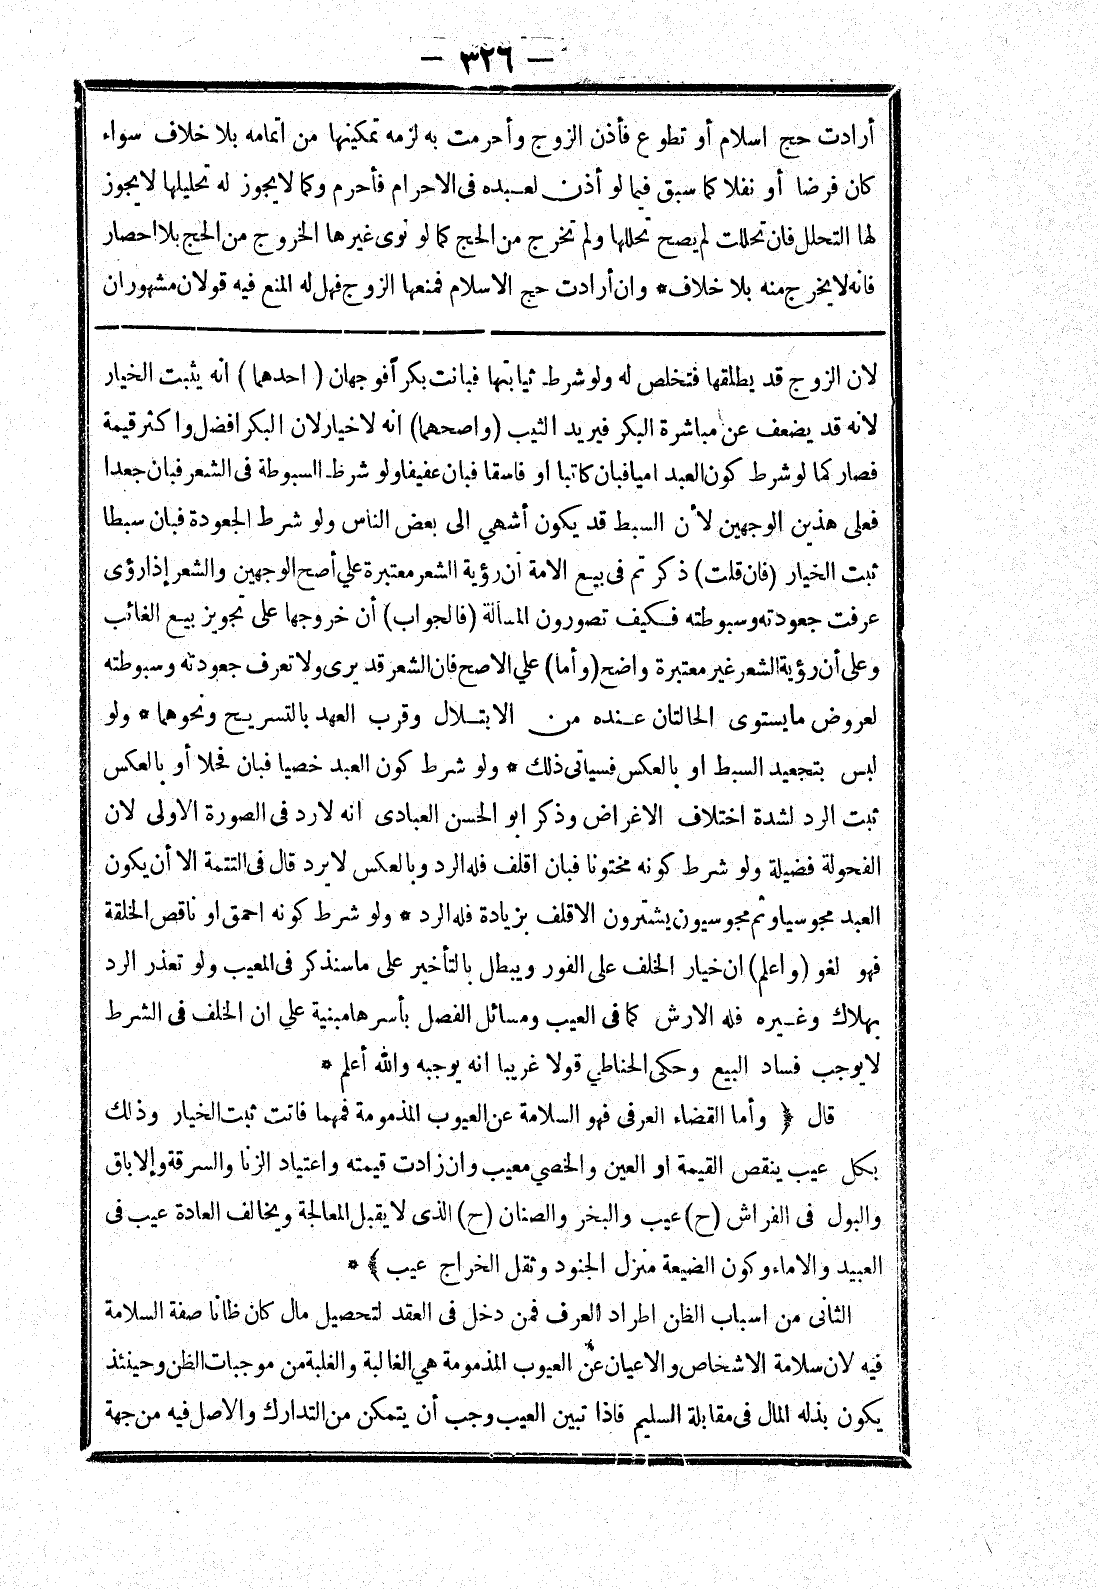 — ٣٢٦ —
أرادت حج اسلام أو تطوع فأذن الزوج وأحرمت به لزمه تمكينها من اتمامه بلا خلاف سواء
كان فرضا أو نفلا كما سبق فيما لو أذن لعبده فى الاحرام فأحرم وكما لا يجوز له تحليلها لا يجوز
لها التحلل فان تحللت لم يصح تحللها ولم تخرج من الحج كما لو نوى غيرها الخروج من الحج بلا احصار
فانه لا يخرج منه بلا خلاف * وان أرادت حج الاسلام فمنعها الزوج فهل له المنع فيه قولان مشهوران
لان الزوج قد يطلقها فتخلص له ولو شرط ثيابتها فبانت بكرا فوجهان ( احدهما ) انه يثبت الخيار
لانه قد يضعف عن مباشرة البكر فيريد الثيب (واصحهما) انه لا خيار لان البكر افضل واكثر قيمة
فصار كما لو شرط كون العبد اميا فبان كاتبا او فاسقا فبان عفيفا ولو شرط السبوطة فى الشعر فبان جعدا
فعلى هذين الوجهين لأن السبط قد يكون أشهي الى بعض الناس ولو شرط الجعودة فبان سبطا
ثبت الخيار (فان قلت) ذكر تم فى بيع الامة ان رؤية الشعر معتبرة علي أصح الوجهين والشعر إذا رؤى
عرفت جعودته وسبوطته فكيف تصورون المسألة (فالجواب) أن خروجها على تجويز بيع الغائب
وعلى أن رؤية الشعر غير معتبرة واضح (وأما) علي الاصح فان الشعر قد يرى ولا تعرف جعودته وسبوطته
لعروض ما يستوى الحالتان عنده من الابتلال وقرب العهد بالتسريح ونحوهما * ولو
لبس بتجعيد السبط او بالعكس فسيأتى ذلك * ولو شرط كون العبد خصيا فبان فحلا أو بالعكس
ثبت الرد لشدة اختلاف الاغراض وذكر ابو الحسن العبادى انه لا رد فى الصورة الاولى لان
الفحولة فضيلة ولو شرط كونه مختونا فبان اقلف فله الرد وبالعكس لا يرد قال فى التتمة الا أن يكون
العبد مجوسيا وثم مجوسيون يشترون الاقلف بزيادة فله الرد * ولو شرط كونه احمق او ناقص الخلقة
فهو لغو (واعلم) ان خيار الخلف على الفور ويبطل بالتأخير على ما سنذكر فى المعيب ولو تعذر الرد
بهلاك وغيره فله الارش كما فى العيب ومسائل الفصل بأسرها مبنية علي ان الخلف فى الشرط
لا يوجب فساد البيع وحكى الحناطي قولا غريبا انه يوجبه والله أعلم *
قال ﴿ وأما القضاء العرفى فهو السلامة عن العيوب المذمومة فمهما فاتت ثبت الخيار وذلك
بكل عيب ينقص القيمة او العين والخصي معيب وان زادت قيمته واعتياد الزنا والسرقة والاباق
والبول فى الفراش (ح) عيب والبخر والصنان (ح) الذى لا يقبل المعالجة ويخالف العادة عيب فى
العبيد والاماء وكون الضيعة منزل الجنود وثقل الخراج عيب ﴾ *
الثانى من اسباب الظن اطراد العرف فمن دخل فى العقد لتحصيل مال كان ظانا صفة السلامة
فيه لان سلامة الاشخاص والاعيان عن العيوب المذمومة هي الغالبة والغلبة من موجبات الظن وحينئذ
يكون بذله المال فى مقابلة السليم فاذا تبين العيب وجب أن يتمكن من التدارك والاصل فيه من جهة